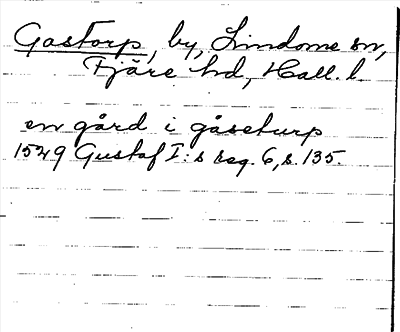 Gastorp, by, Lindome sn,
Fjäre hd, Hall. l.
en gård i gåseturp
1529 Gustaf I:s reg. 6, s. 135.